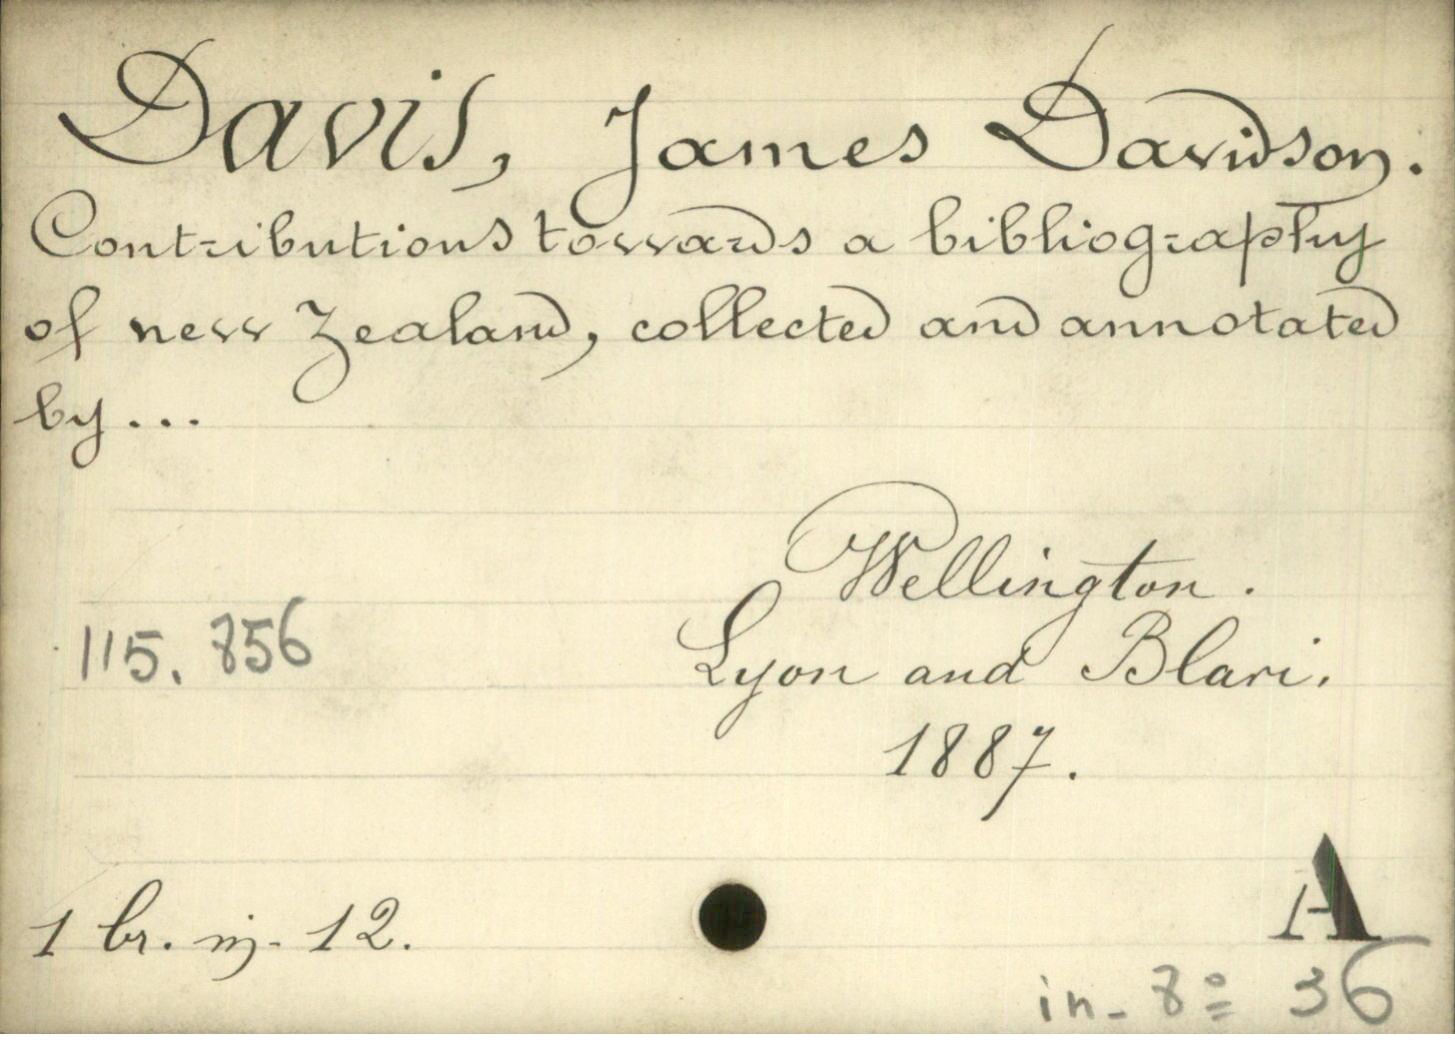 Davis, James Davidson.
Contributions towards a bibliography
of new Zealand, collected and annotated
by...
Wellington.
115. 856
Lyon and Blari.
1887.
A
1 br. in-12.
in-8º 36